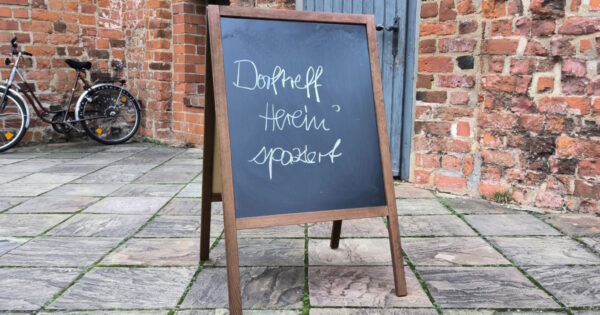 Dorftreff
Herein'
spaziert